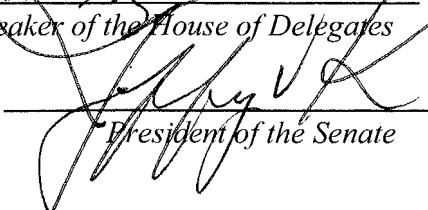 eaker of the House of Delegates
President of the Senate